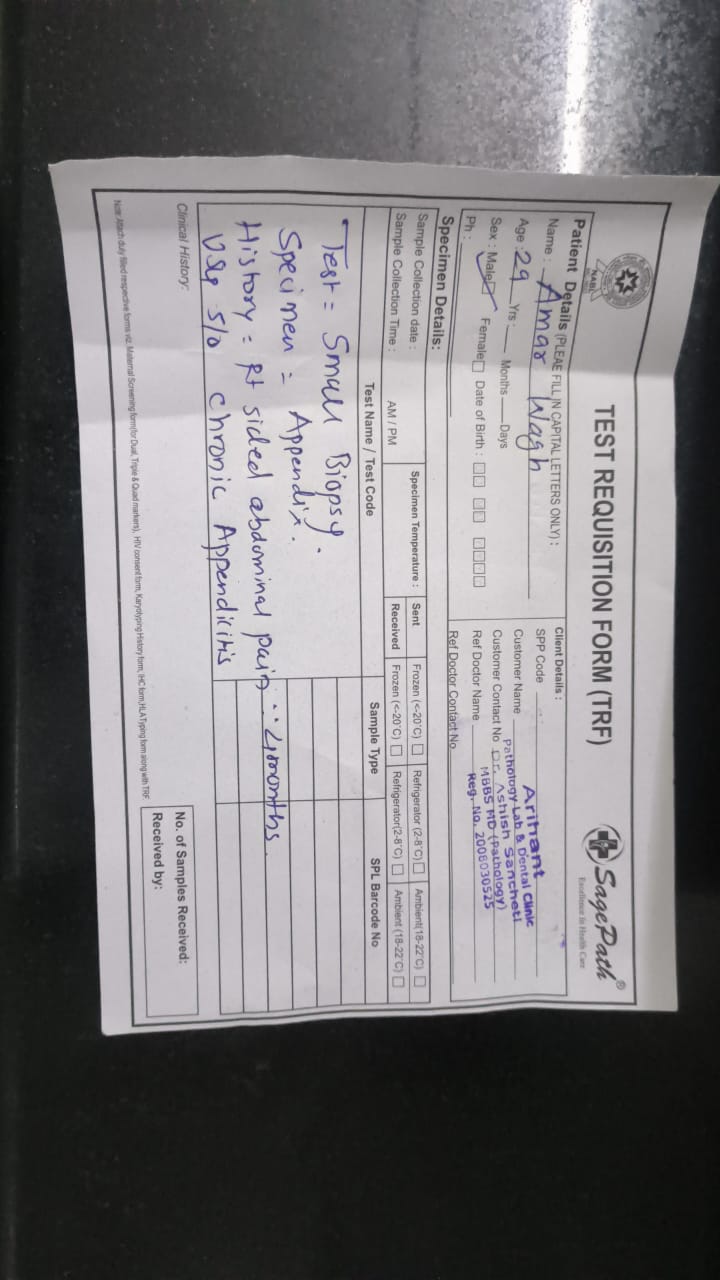 NABL
TEST REQUISITION FORM (TRF)
SagePath®
Excellence In Health Care
Patient Details (PLEAE FILL IN CAPITAL LETTERS ONLY) :
Name : Amar Wagh
Age : 29 Yrs : Months Days
Sex : Male Female Date of Birth :
Ph :
Client Details :
SPP Code
Customer Name
Customer Contact No
Ref Doctor Name
Ref Doctor Contact No
Arihant
Pathology Lab & Dental Clinic
Dr. Ashish Sancheti
MBBS MD (Pathology)
Reg. No. 2008030525
Specimen Details:
Sample Collection date : Specimen Temperature : Sent Frozen (<-20°C) Refrigerator (2-8°C) Ambient(18-22°C)
Sample Collection Time : AM / PM Received Frozen (<-20°C) Refrigerator(2-8°C) Ambient (18-22°C)
Test Name / Test Code Sample Type SPL Barcode No
Test = Small Biopsy.
Specimen = Appendix.
History = Rt sided abdominal pain :: 4months.
USG S/o chronic Appendicitis
Clinical History:
No. of Samples Received:
Received by:
Note: Attach duly filled respective forms viz. Maternal Screening form(for Dual, Triple & Quad markers), HIV consent form, Karyotyping History form, IHC form,HLA Typing form along with TRF.